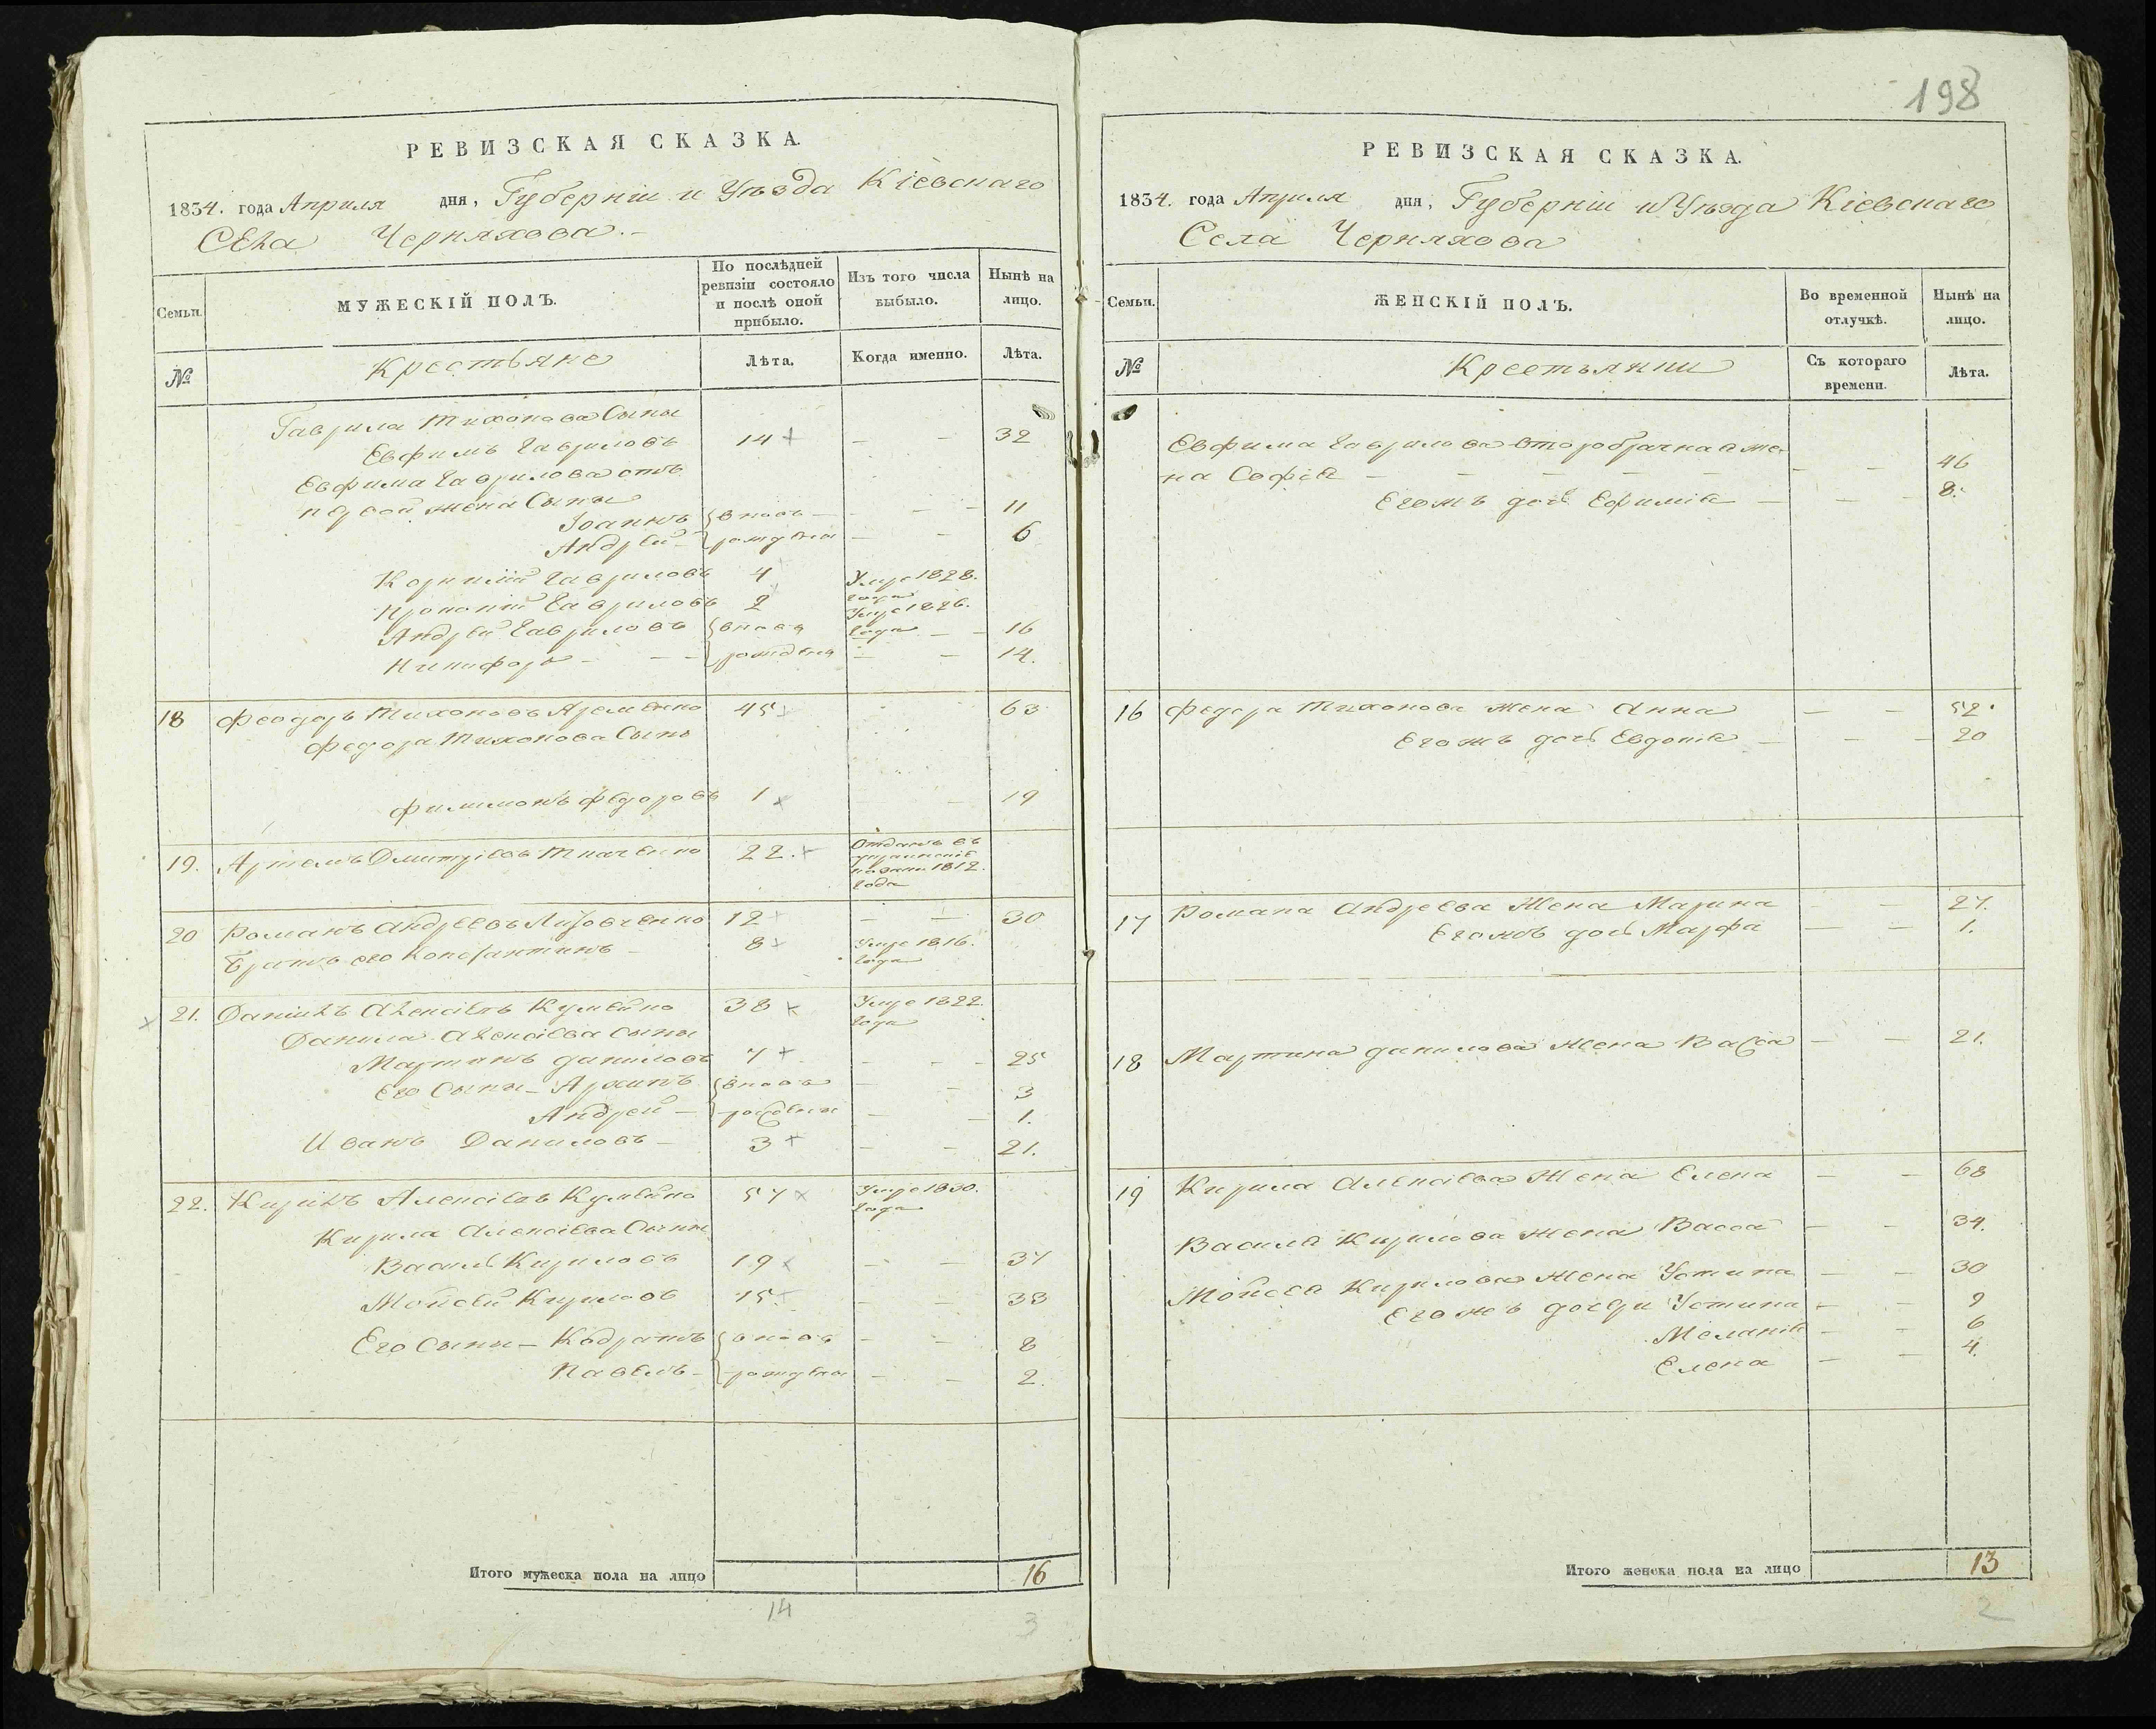 198
РЕВИЗСКАЯ СКАЗКА.
1834. года Апреля дня, Губерніи и Уѣзда Кіевскаго
Села Черняхова.
Семьи.
МУЖЕСКІЙ ПОЛЪ.
По послѣдней ревизіи состояло и послѣ оной прибыло.
Изъ того числа выбыло.
Нынѣ на лицо.
№
Крестьяне
Лѣта.
Когда именно.
Лѣта.
Гаврила Тихонова Сыны
Евфимъ Гавриловъ 14 — — 32
Евфима Гаврилова отъ
первой жены Сыны
Іоаннъ вновь — — 11
Андрей рождены — — 6
Корнилій Гавриловъ 4 Умре 1828. года
Гавриловъ 2 Умре 1826. года
Андрей Гавриловъ вновь — — 16
Никифоръ — — рождены — — 14.
18 Феодоръ Тихоновъ 45 63
Федора Тихонова Сынъ
Филимонъ Федоровъ 1 — 19
19. Артемъ Дмитріевъ Ткаченко 22. Отданъ въ 1812. года
20 Романъ Андреевъ 12 — — 30
Братъ его Константинъ — 8 Умре 1816. года
21. Даніилъ Алексіевъ 38 Умре 1822. года
Данила Алексіева сыны
Мартинъ Даниловъ 7 — — 25
Его Сыны — Архипъ вновь — — 3
Андрей — рождены — — 1.
Иванъ Даниловъ — 3 — — 21.
22. Кирилъ Алексіевъ 57 Умре 1830. года
Кирила Алексіева Сыны
Василь Кириловъ 19 — — 37
Мойсей Кириловъ 15. — — 33
Его Сыны — Кодратъ вновь — — 8
Павелъ — рождены — — 2.
Итого мужеска пола на лицо 16
14 3
РЕВИЗСКАЯ СКАЗКА.
1834. года Апреля дня, Губерніи и Уѣзда Кіевскаго
Села Черняхова
Семьи.
ЖЕНСКІЙ ПОЛЪ.
Во временной отлучкѣ.
Нынѣ на лицо.
№
Крестьянки
Съ котораго времени.
Лѣта.
Евфима Гаврилова второбрачная же-
на Софія — — 46
Егожъ дочь Ефимія — — 8.
16 Федора Тихонова жена Анна — — 52.
Егожъ дочь Евдокія — — 20
17 Романа Андреева Жена Марина — — 27.
Егожъ дочь Марфа — — 1.
18 Мартина Данилова жена Васса — — 21.
19 Кирила Алексіева Жена Елена — — 68
Василя Кирилова жена Васса — — 34.
Мойсея Кирилова жена Устина — — 30
Егожъ дочери Устина — — 9
Меланія — — 6
Елена — — 4.
Итого женска пола на лицо 13
2